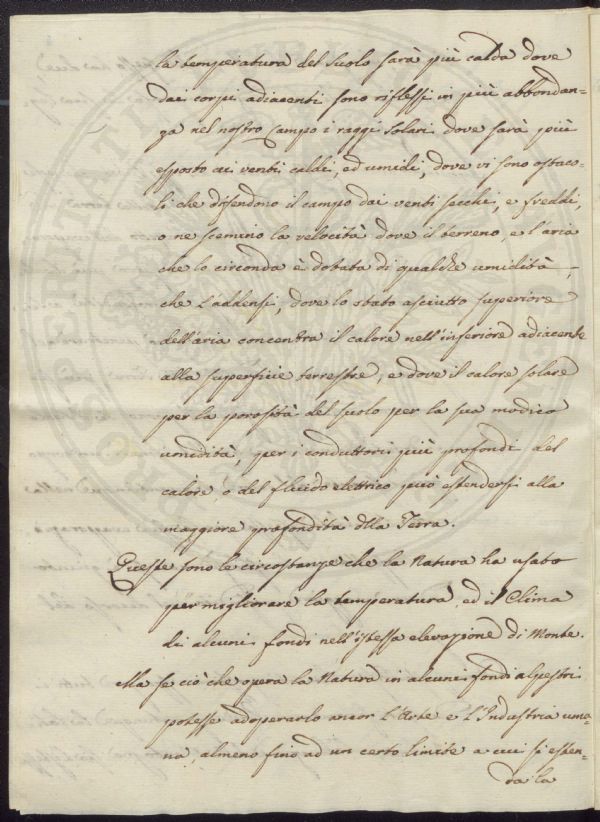 la temperatura del Suolo sarà più calda dove
dai corpi adiacenti sono riflessi in più abbondan-
za nel nostro campo i raggi Solari dove sarà più
esposto ai venti caldi, ed umidi, dove vi sono ostaco-
li che difendono il campo dai venti secchi, e freddi,
o ne scemino la velocità dove il terreno, e l'aria
che lo circonda è dotata di qualche umidità,
che l'addensi, dove lo stato asciutto superiore
dell'aria concentra il calore nell'inferiore adiacente
alla superficie terrestre, e dove il calore solare
per la porosità del suolo per la sua modica
umidità, per i conduttori più profondi del
calore, o del fluido elettrico può estendersi alla
maggiore profondità dlla Terra.
Queste sono le circostanze che la Natura ha usato
per migliorare la temperatura, ed il Clima
di alcuni fondi nell'istessa elevazione di Monte.
Ma se ciò che opera la Natura in alcuni fondi alpestri
potesse adoperarlo ancor l'Arte e l'Industria uma-
na, almeno fino ad un certo limite a cui si esten-
da la